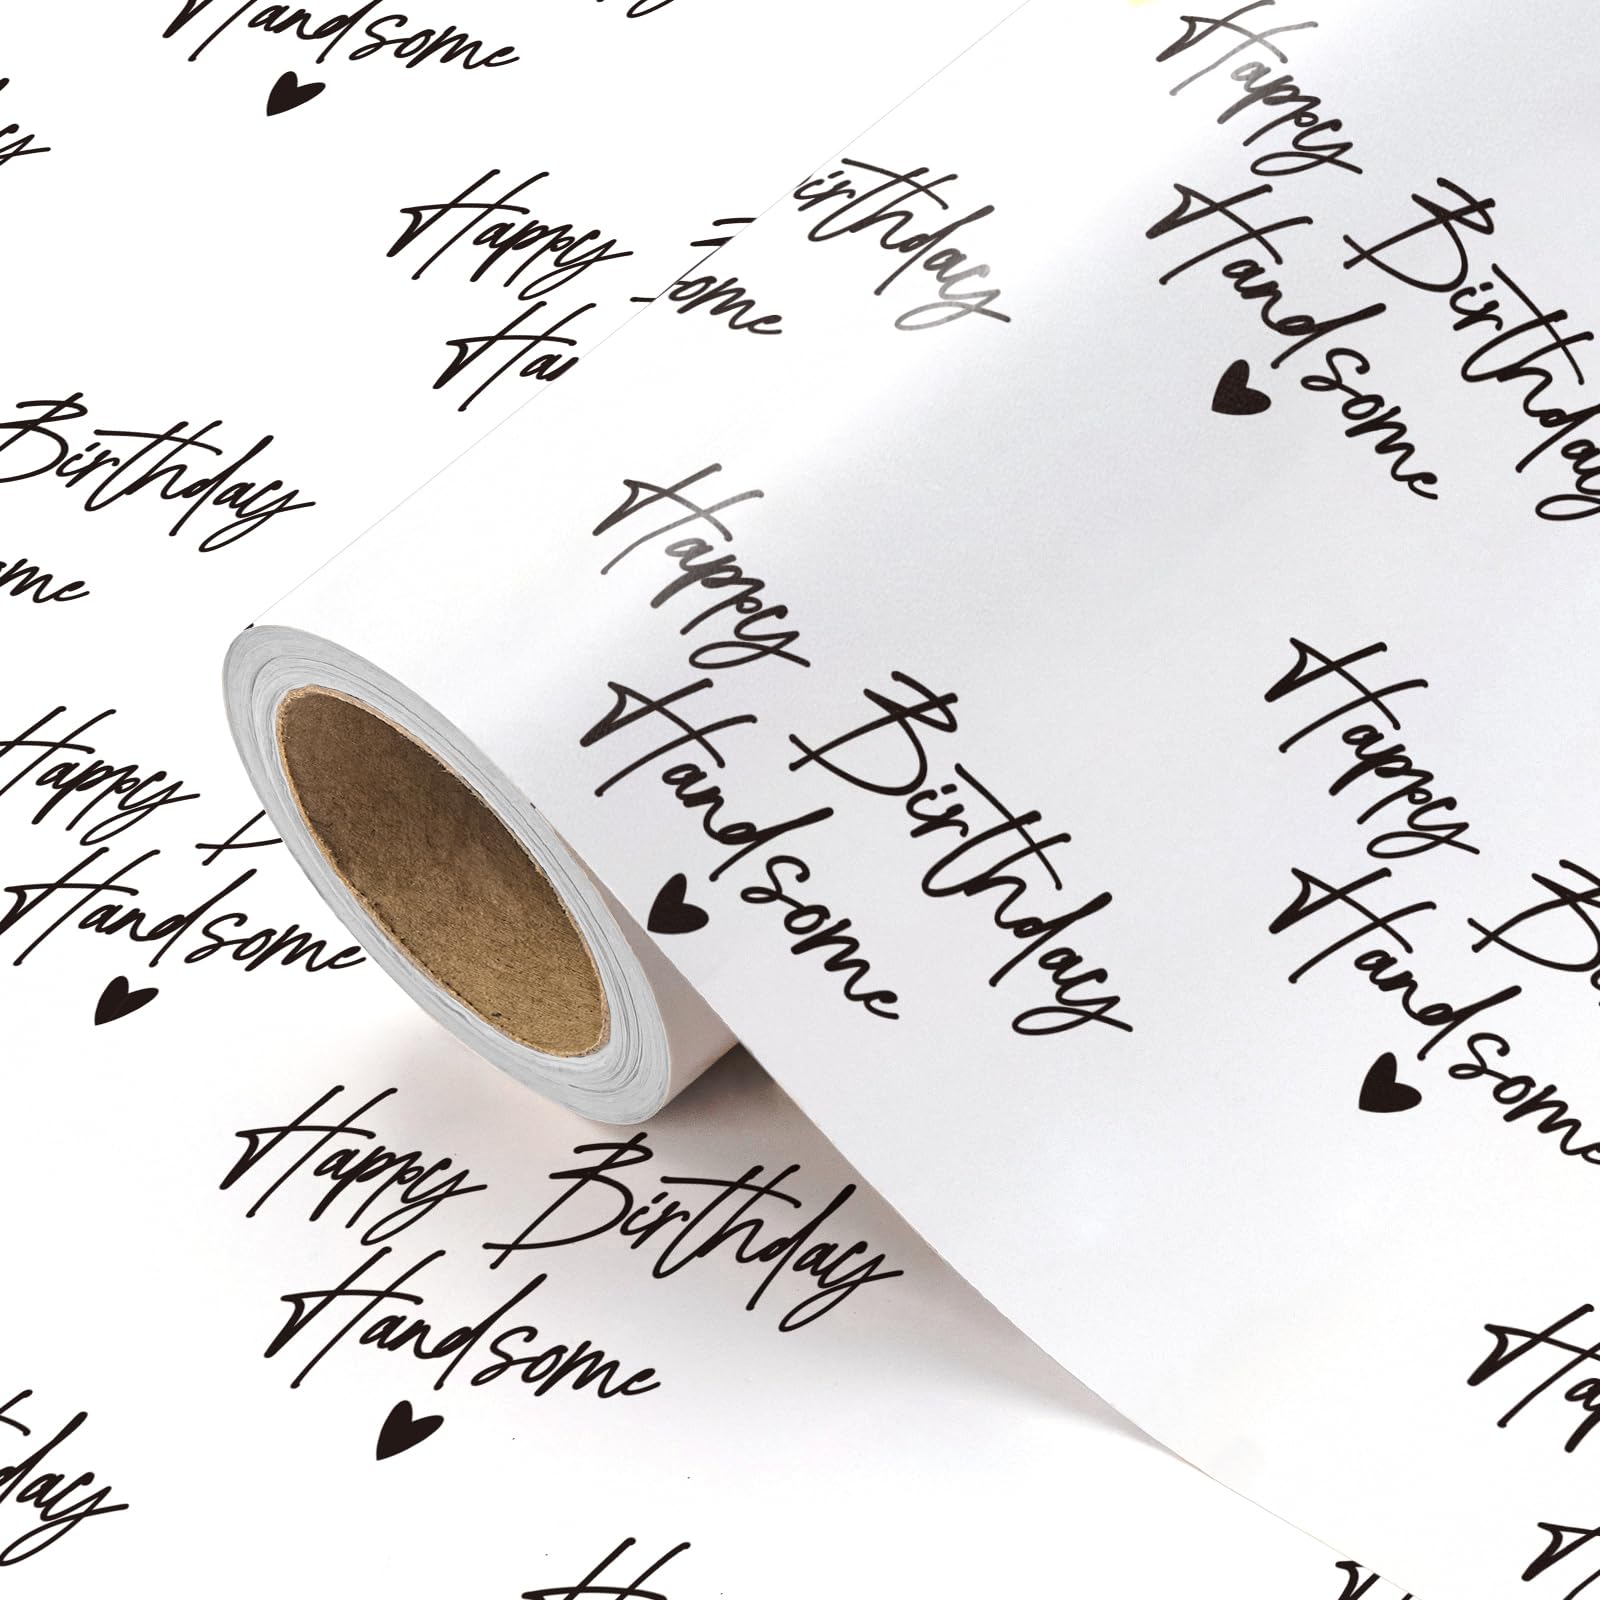 Handsome
Happy
Birthday
Happy Birthday
Handsome
Birthday
Happy Birthday
Handsome
Happy
Handsome
Happy
Handsome
Happy Birthday
Handsome
Happy